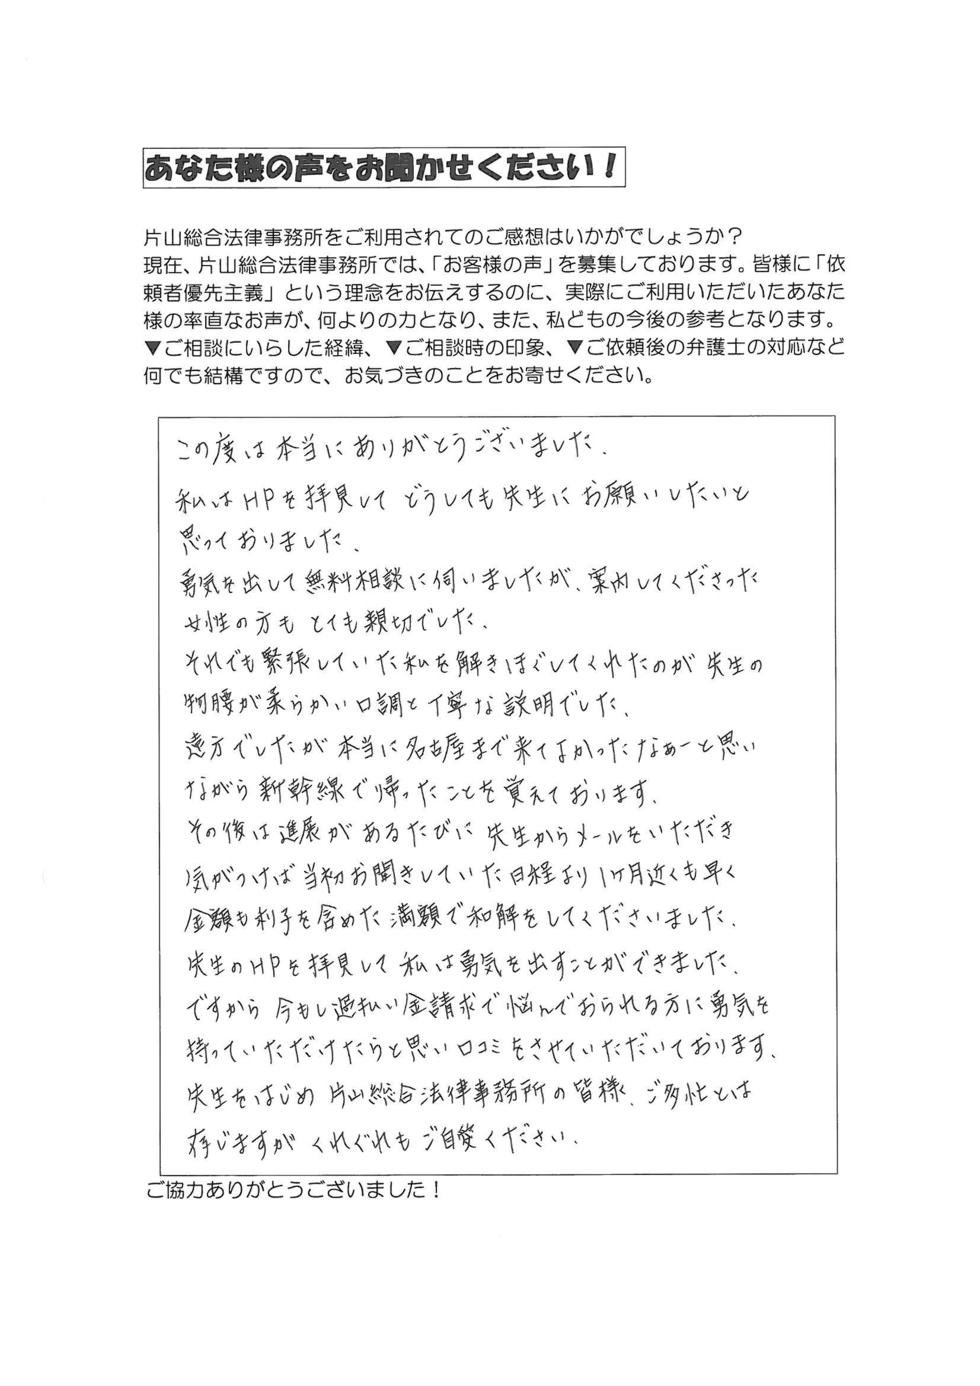 あなた様の声をお聞かせください！
片山総合法律事務所をご利用されてのご感想はいかがでしょうか？
現在、片山総合法律事務所では、「お客様の声」を募集しております。皆様に「依
頼者優先主義」という理念をお伝えするのに、実際にご利用いただいたあなた
様の率直なお声が、何よりの力となり、また、私どもの今後の参考となります。
▼ご相談にいらした経緯、▼ご相談時の印象、▼ご依頼後の弁護士の対応など
何でも結構ですので、お気づきのことをお寄せください。
この度は本当にありがとうございました。
私はHPを拝見してどうしても先生にお願いしたいと
思っておりました。
勇気を出して無料相談に伺いましたが、案内してくださった
女性の方もとても親切でした。
それでも緊張していた私を解きほぐしてくれたのが先生の
物腰が柔らかい口調と丁寧な説明でした。
遠方でしたが本当に名古屋まで来てよかったなぁーと思い
ながら新幹線で帰ったことを覚えております。
その後は進展があるたびに先生からメールをいただき
気がつけば当初お聞きしていた日程より1ヶ月近くも早く
金額も利子を含めた満額で和解をしてくださいました。
先生のHPを拝見して私は勇気を出すことができました。
ですから今もし過払い金請求で悩んでおられる方に勇気を
持っていただけたらと思い口コミをさせていただいております。
先生をはじめ片山総合法律事務所の皆様、ご多忙とは
存じますがくれぐれもご自愛ください。
ご協力ありがとうございました！